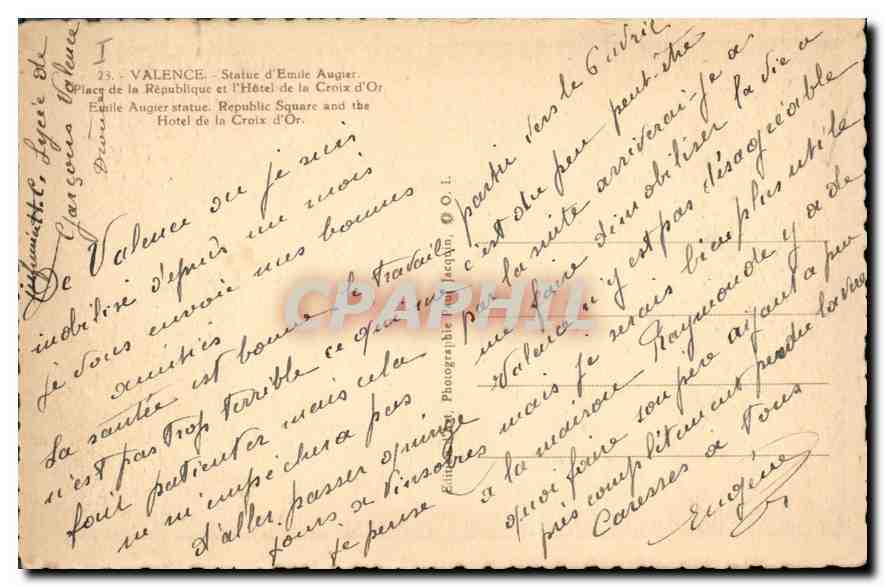 23. - VALENCE. - Statue d'Emile Augier.
Place de la République et l'Hôtel de la Croix d'Or
Emile Augier statue. Republic Square and the
Hotel de la Croix d'Or.
I
H.C. Lycée de
Garçons Valence
Drome
De Valence ou je suis
mobilisé depuis un mois
je vous envoie mes bonnes
amitiés
La santée est bonne le travail
n'est pas trop terrible ce qui me
fait patienter mais cela
ne m'empêchera pas
d'aller passer quinze
jours a Vinsobres mais je serais bien plus utile
Je pense
partir vers le 6 avril
c'est du peu peut-être
par la suite arriverai-je a
me faire dimobiliser la vie a
Valence n'y est pas désagréable
a la maison Raymonde y a de
quoi faire son père ayant a peu
près complètement perdu la vue
Caresses à tous
Eugène
Photographie Jacquin, O. I.
CPAPHIL